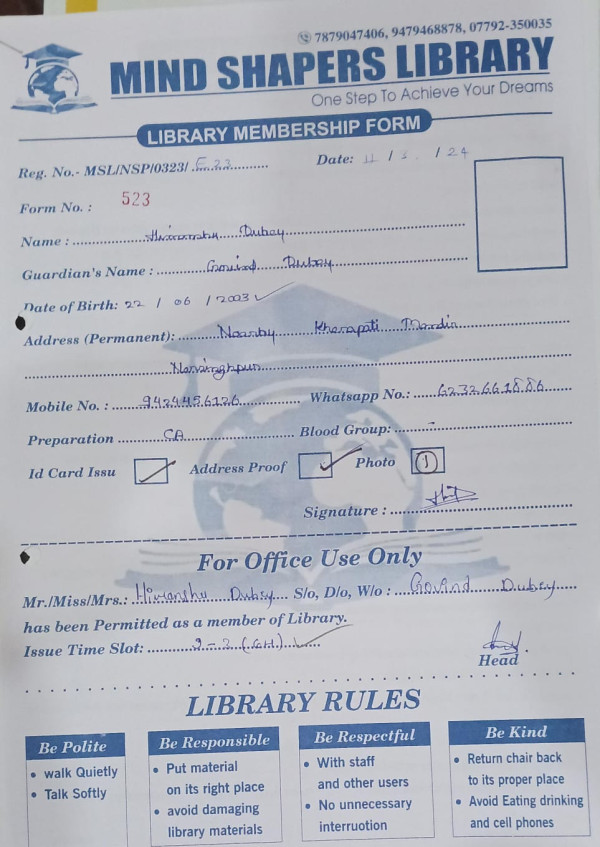 7879047406, 9479468878, 07792-350035
MIND SHAPERS LIBRARY
One Step To Achieve Your Dreams
LIBRARY MEMBERSHIP FORM
Reg. No.- MSL/NSP/0323/ 523 Date: 11 / 3 / 24
Form No. : 523
Name : Himanshu Dubey
Guardian's Name : Govind Dubey
Date of Birth: 22 / 06 / 2003
Address (Permanent): Nearby Kherapati Mandir
Narsinghpur
Mobile No. : 9424456126 Whatsapp No.: 6232661886
Preparation CA Blood Group: -
Id Card Issu Address Proof Photo 1
Signature :
For Office Use Only
Mr./Miss/Mrs.: Himanshu Dubey S/o, D/o, W/o : Govind Dubey
has been Permitted as a member of Library.
Issue Time Slot: 9-3 (6H)
Head
LIBRARY RULES
Be Polite
• walk Quietly
• Talk Softly
Be Responsible
• Put material
on its right place
• avoid damaging
library materials
Be Respectful
• With staff
and other users
• No unnecessary
interruotion
Be Kind
• Return chair back
to its proper place
• Avoid Eating drinking
and cell phones